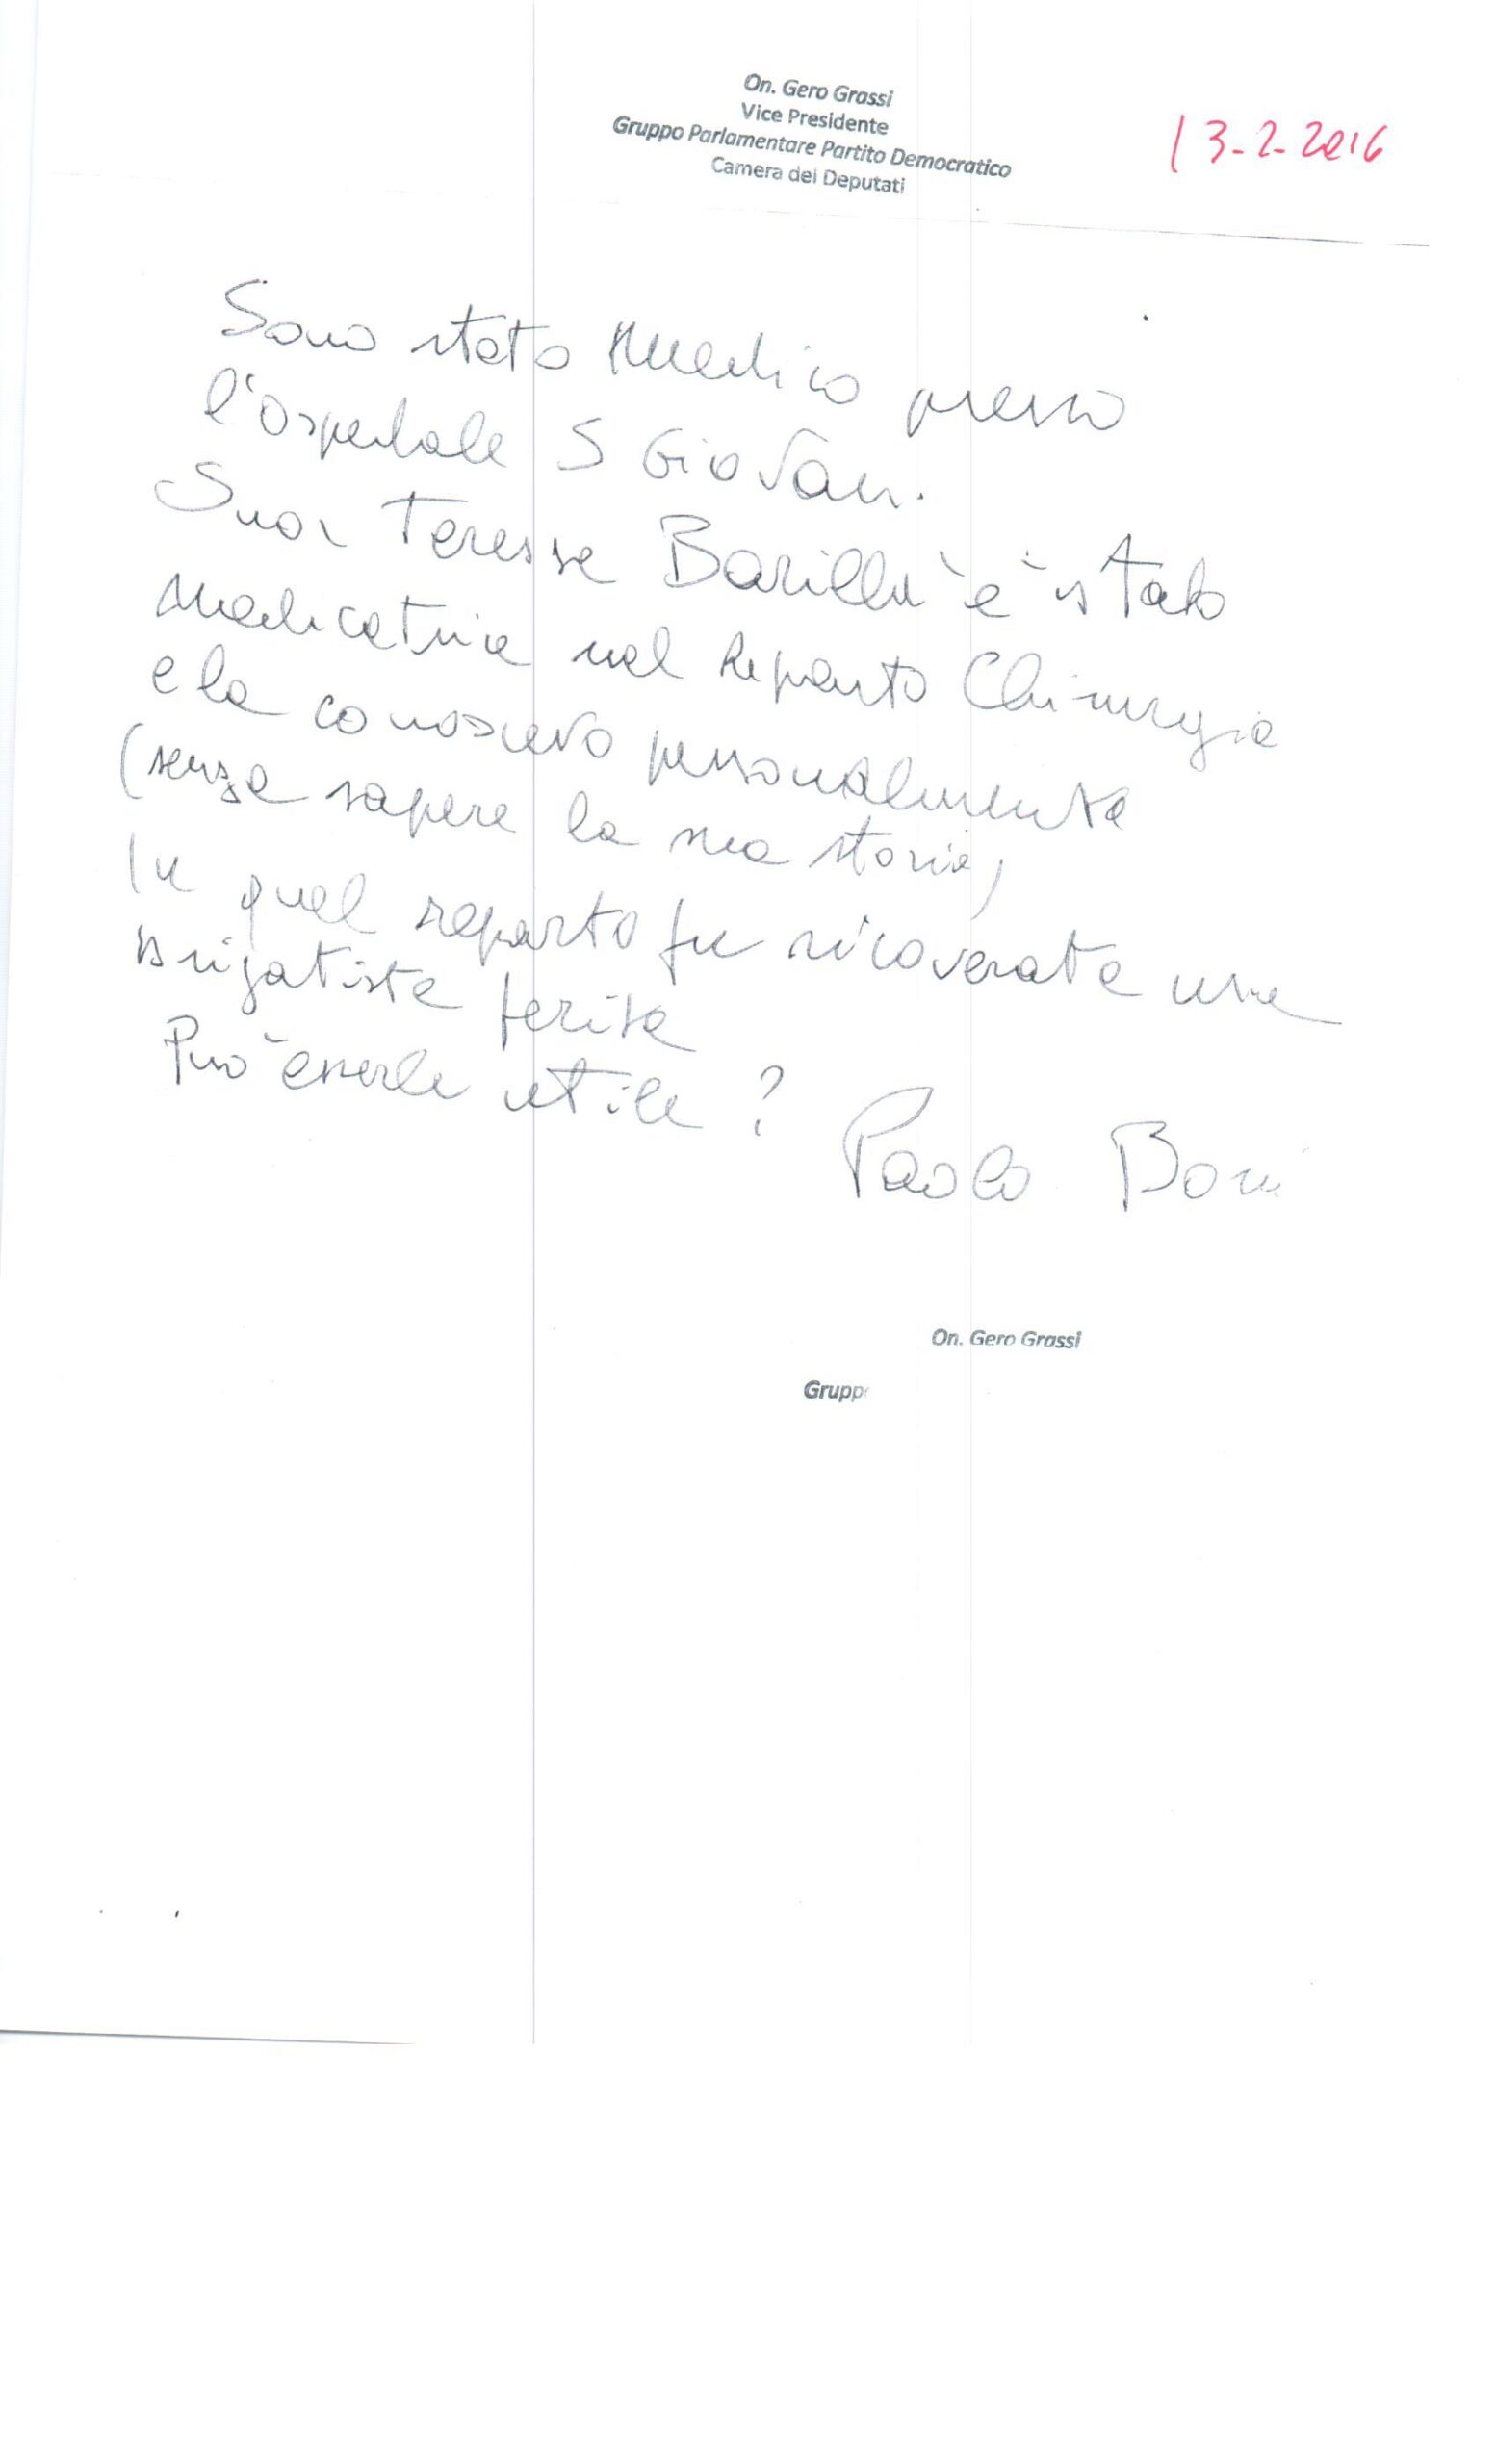 On. Gero Grassi
Vice Presidente
Gruppo Parlamentare Partito Democratico
Camera dei Deputati
13-2-2016
Sono stato medico presso
l'Ospedale S Giovan.
Suor Teresa Barilla' e' stato
medicatrice nel Reparto Chirurgia
e la conoscevo personalmente
(senza sapere la sua storia)
In quel reparto fu ricoverata una
brigatista ferita
Puo' esserle utile?
Paolo Boni
On. Gero Grassi
Grupp